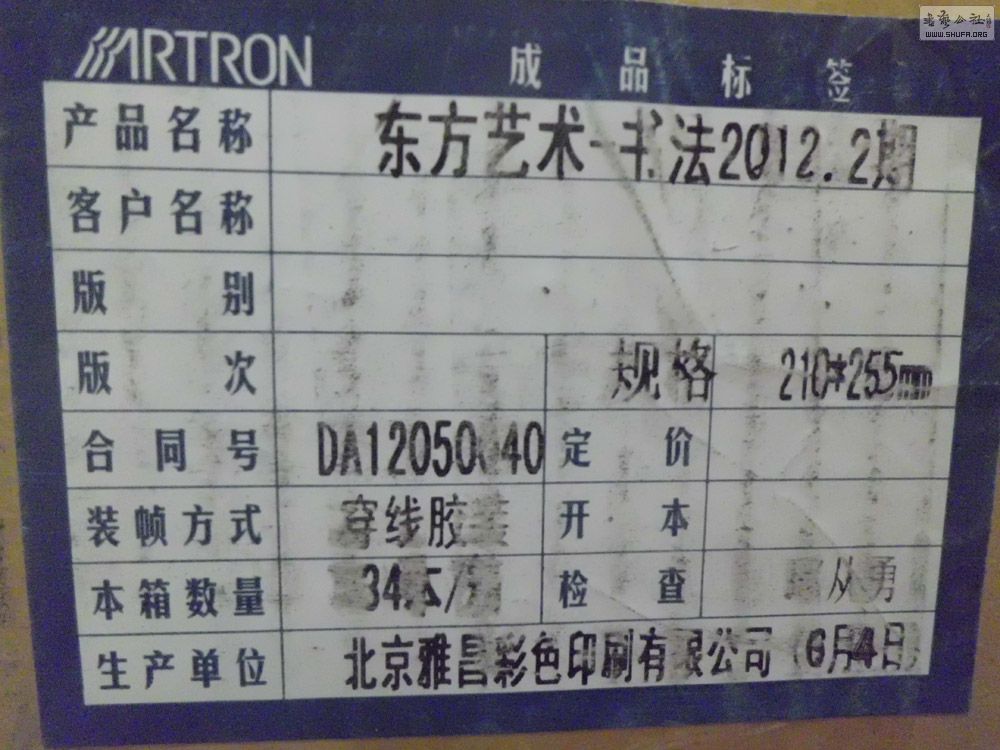 書法公社
WWW.SHUFA.ORG
ARTRON 成品标签
产品名称 东方艺术-书法2012.2期
客户名称
版别
版次 规格 210*255mm
合同号 DA12050040 定价
装帧方式 穿线胶装 开本
本箱数量 34本/ 检查 从勇
生产单位 北京雅昌彩色印刷有限公司(6月4日)